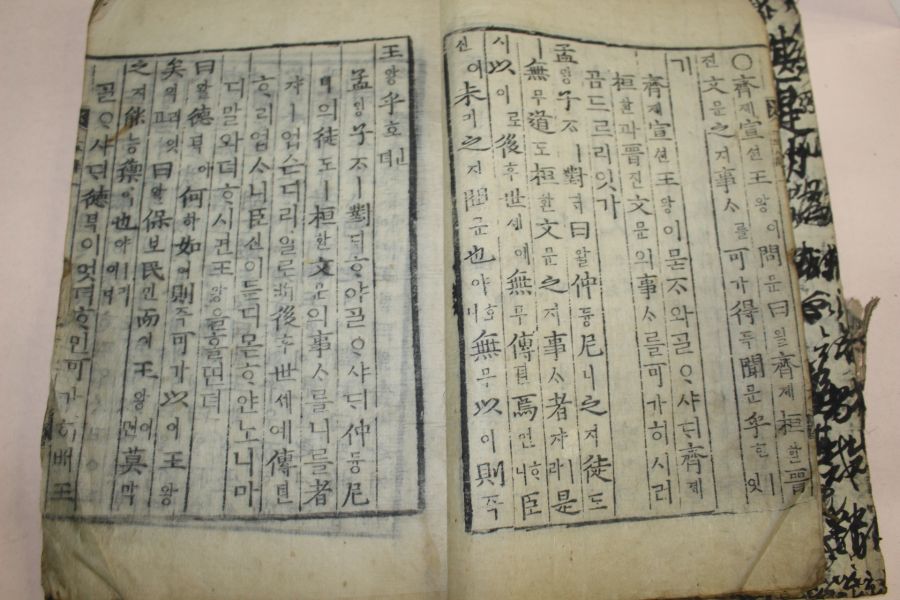 ○齊졔宣션王왕이問문曰왈齊졔桓환晉
진文문之지事ᄉᆞ를可가得득聞문乎호ᅵ잇
가
齊졔宣션王왕이묻ᄌᆞ와ᄀᆞᆯᄋᆞ샤ᄃᆡ齊졔
桓환과晉진文문의事ᄉᆞ를可가히시러
곰드르리잇가
孟ᄆᆡᆼ子ᄌᆞᅵ對ᄃᆡ曰왈仲듕尼니之지徒도
ᅵ無무道도桓환文문之지事ᄉᆞ者쟈ᅵ라是
시以이로後후世셰에無무傳뎐焉언ᄒᆞ니臣
신이未미之지聞문也야호니無무以이則즉
王왕乎호ᅵᆫ뎌
孟ᄆᆡᆼ子ᄌᆞᅵ對ᄃᆡᄒᆞ야ᄀᆞᆯᄋᆞ샤ᄃᆡ仲듕尼
니의徒도ᅵ桓환文문의事ᄉᆞ를니를者
쟈ᅵ업슨디라일로ᄡᅥ後후世셰예傳뎐
ᄒᆞ리업ᄉᆞ니臣신이듣디몯ᄒᆞ얀노니마
디말와뎌ᄒᆞ시면王왕을홀딘뎌
曰왈德덕이何하如여則즉可가以이王왕
矣의리잇고曰왈保보民민而이王왕이면莫막
之지能능禦어也야ᅵ리이다
ᄀᆞᆯᄋᆞ샤ᄃᆡ德덕이엇더ᄒᆞ면可가히ᄡᅥ王